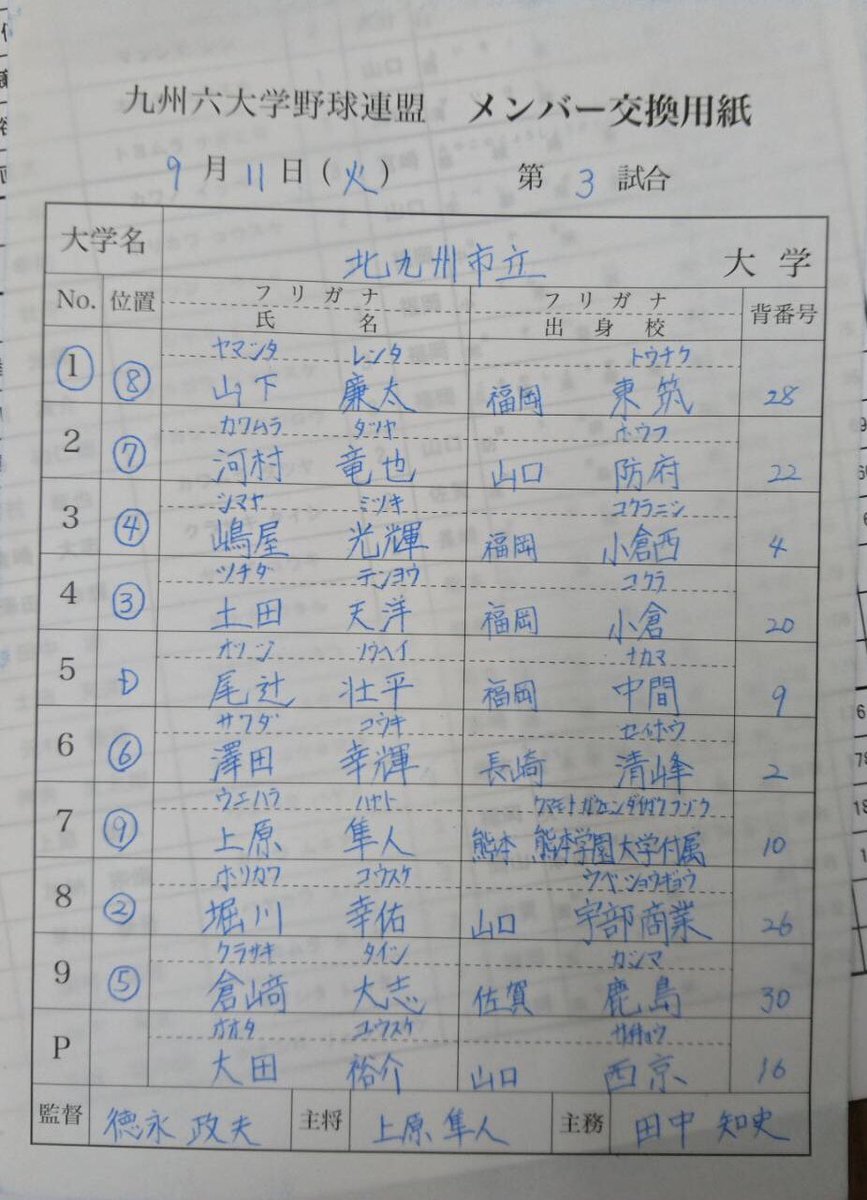 九州六大学野球連盟 メンバー交換用紙
9月11日(火) 第3試合
大学名 北九州市立 大学
No. 位置 フリガナ フリガナ 背番号
氏名 出身校
ヤマシタ レンタ トウチク
① ⑧ 山下 廉太 福岡 東筑 28
カワムラ タツヤ ホウフ
2 ⑦ 河村 竜也 山口 防府 22
シマヤ ミツキ コクラニシ
3 ④ 嶋屋 光輝 福岡 小倉西 4
ツチダ テンヨウ コクラ
4 ③ 土田 天洋 福岡 小倉 20
オツジ ソウヘイ ナカマ
5 D 尾辻 壮平 福岡 中間 9
サワダ コウキ セイホウ
6 ⑥ 澤田 幸輝 長崎 清峰 2
ウエハラ ハヤト クマモトガクエンダイガクフゾク
7 ⑨ 上原 隼人 熊本 熊本学園大学付属 10
ホリカワ コウスケ ウベショウギョウ
8 ② 堀川 幸佑 山口 宇部商業 26
クラサキ タイシ カシマ
9 ⑤ 倉﨑 大志 佐賀 鹿島 30
オオタ ユウスケ サイキョウ
P 大田 裕介 山口 西京 16
監督 徳永 政夫 主将 上原 隼人 主務 田中 知史